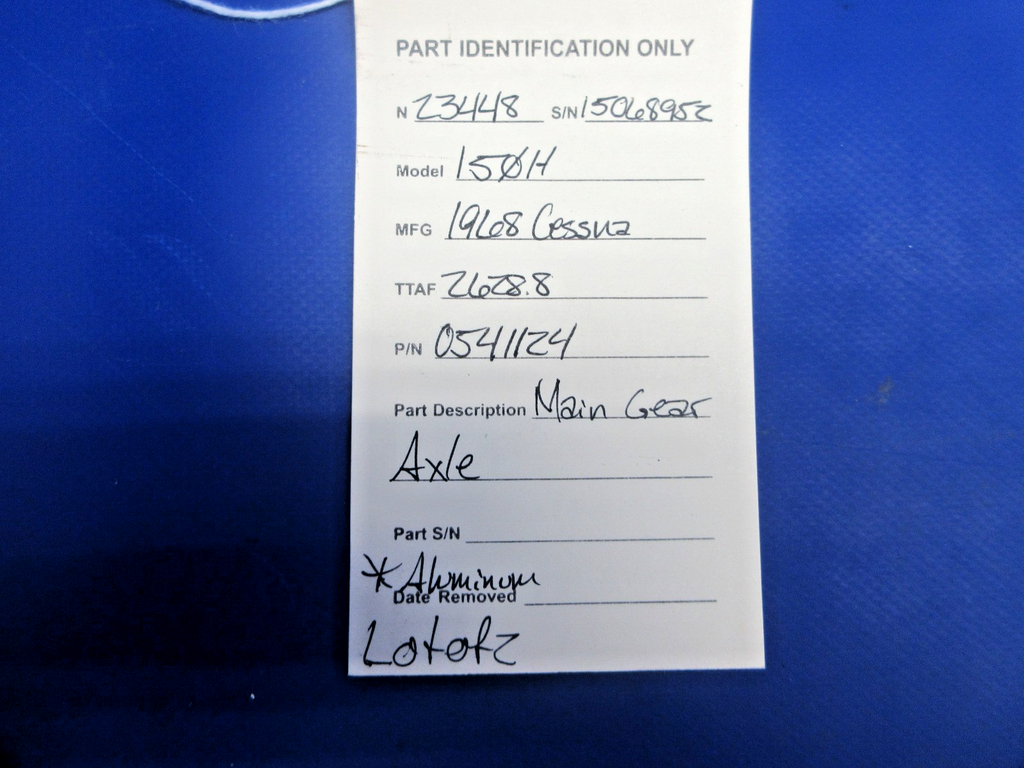 PART IDENTIFICATION ONLY
N 23448 S/N 15068952
Model 150H
MFG 1968 Cessna
TTAF 2628.8
P/N 0541124
Part Description Main Gear
Axle
Part S/N
* Aluminum
Date Removed
Lot of 2